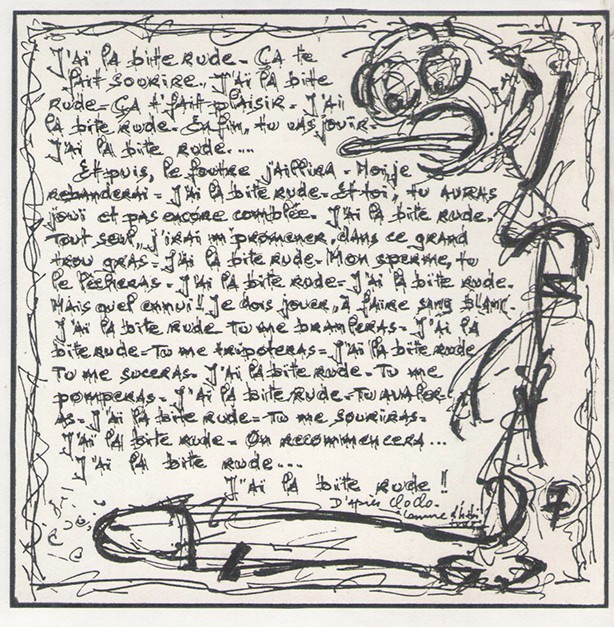 J'Ai lA bite RUde - ÇA te
fait souRiRe.. J'Ai lA bite
RUde - ÇA t'fait plaisiR - J'Ai
lA bite RUde - Enfin, tu vAs jouiR -
J'Ai lA bite RUde....
Et puis, le foutRe jAilliRA - Moi, je
RebAndeRAi - J'Ai lA bite RUde - Et toi, tu AURAS
joui et pAs encoRe comblée. J'Ai lA bite RUde.
Tout seul, j'iRAi m'pRomeneR, dAns ce gRAnd
tRou gRAs - J'Ai lA bite RUde - Mon speRme, tu
le lècheRAs - J'Ai lA bite RUde - J'Ai lA bite RUde.
MAis quel ennui !! Je dois joueR, à fAiRe sAng BLANC.
J'Ai lA bite RUde - Tu me bRAnleRAs - J'Ai lA
bite RUde - Tu me tRipoteRAs - J'Ai lA bite RUde
Tu me suceRAs - J'Ai lA bite RUde - Tu me
pompeRAs - J'Ai lA bite RUde - Tu AvAleR-
As - J'Ai lA bite RUde - Tu me souRiRAs -
J'Ai lA bite RUde - On RecommenceRA...
J'Ai lA bite RUde...
J'Ai lA bite RUde !
D'Après CloClo.
7